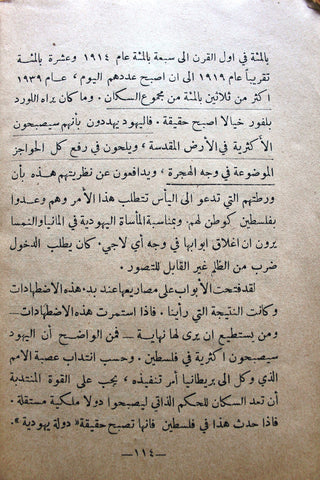 بالمئة في اول القرن الى سبعة بالمئة عام ١٩١٤ وعشرة بالمئة
تقريباً عام ١٩١٩ الى ان اصبح عددهم اليوم ، عام ١٩٣٩
اكثر من ثلاثين بالمئة من مجموع السكان . وما كان يراه اللورد
بلفور خيالا اصبح حقيقة . فاليهود يهددون بأنهم سيصبحون
الأكثرية في الأرض المقدسة ، ويلحون في رفع كل الحواجز
الموضوعة في وجه الهجرة ، ويدافعون عن نظريتهم هذه بأن
ورطتهم التي تدعو الى اليأس تتطلب هذا الأمر وهم وعدوا
بفلسطين كوطن لهم. وبمناسبة المأساة اليهودية في المانيا والنمسا
يرون ان اغلاق ابوابها في وجه أي لاجيء كان يطلب الدخول
ضرب من الظلم غير القابل للتصور .
لقد فتحت الأبواب على مصاريعها عند بدء هذه الاضطهادات
وكانت النتيجة التي رأينا . فاذا استمرت هذه الاضطهادات—
ومن يستطيع ان يرى لها نهاية — فمن الواضح أن اليهود
سيصبحون اكثرية في فلسطين . وحسب انتداب عصبة الامم
الذي وكل الى بريطانيا أمر تنفيذه ، يجب على القوة المنتدبة
أن تعد السكان للحكم الذاتي ليصبحوا دولا ملكية مستقلة .
فاذا حدث هذا في فلسطين فانها تصبح حقيقة «دولة يهودية».
—١١٤—